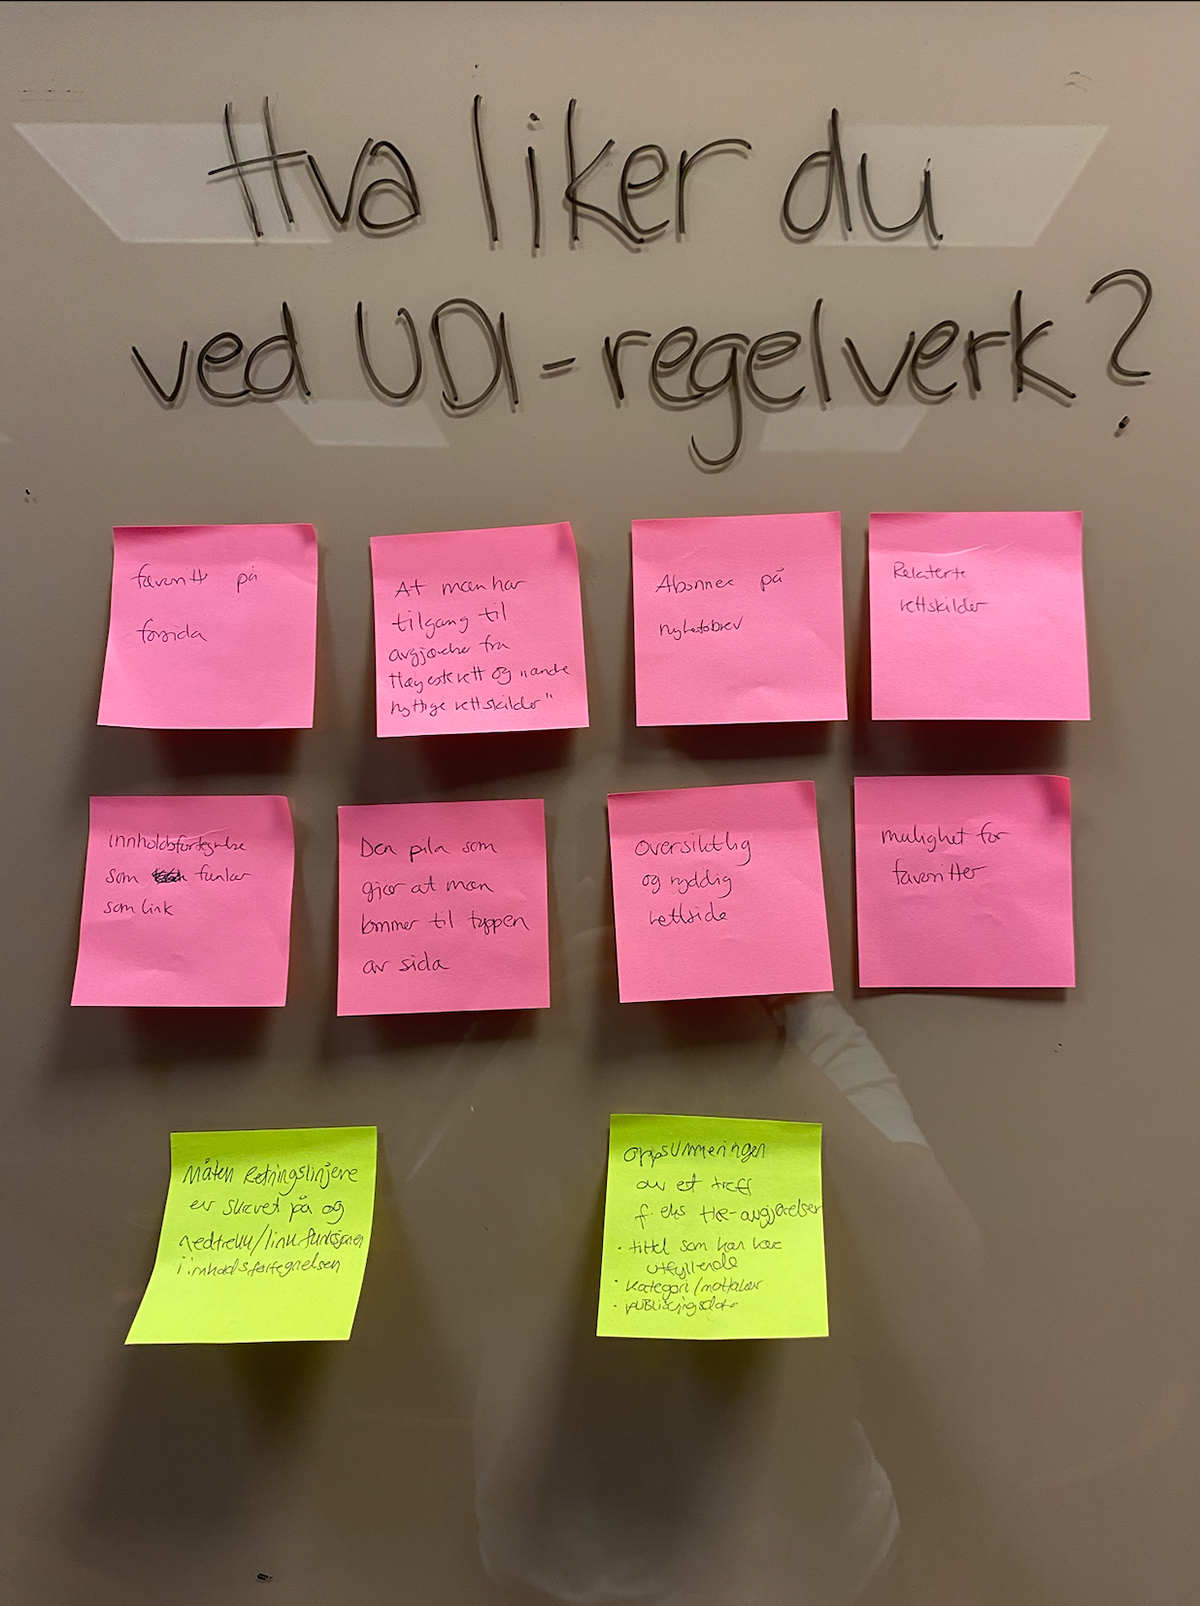 Hva liker du
ved UDI-regelverk?
favoritt på
forsida
At man har
tilgang til
avgjørelse fra
Høyesterett og "andre
nyttige rettskilder"
Abonnere på
nyhetsbrev
Relaterte
rettskilder
innholdsfortegnelse
som funker
som link
Den pila som
gjør at man
kommer til toppen
av sida
oversiktlig
og ryddig
nettside
mulighet for
favoritter
Måten Retningslinjene
er skrevet på og
nedtrekk/link funksjonen
i innholdsfortegnelsen
oppsummeringen
av et treff
f. eks HR-avgjørelser
· tittel som kan være
utfyllende
· kategori/mottaker
· publiseringsdato